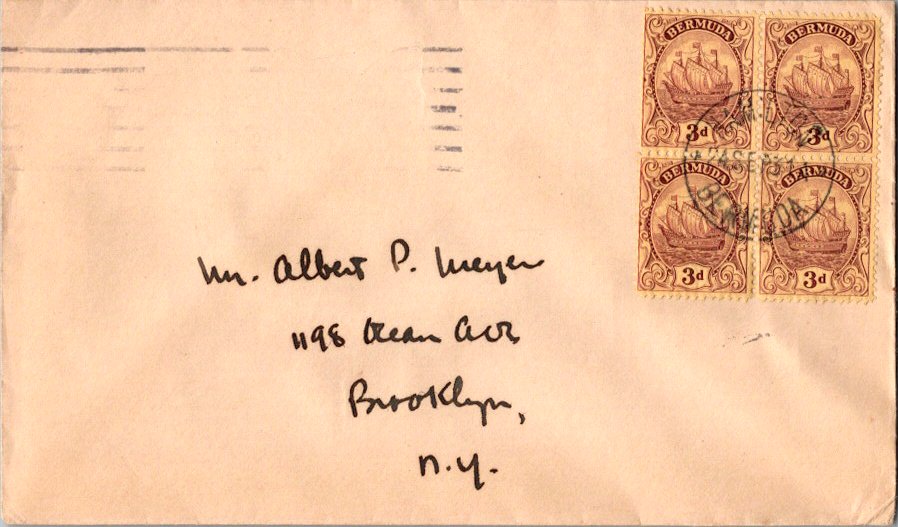 BERMUDA BERMUDA
3d 3d
BERMUDA BERMUDA
3d 3d
BERMUDA
Mr. Albert P. Meyer
1198 Ocean Ave
Brooklyn,
N.Y.